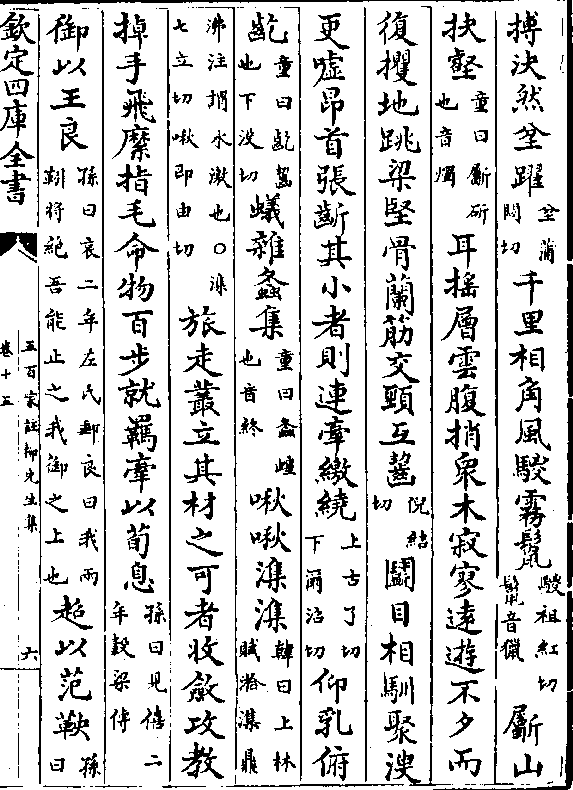 搏决然坌躍坌蒲悶切千里相角風騣霧鬛騣祖紅切鬛音獵斸山
抉壑童曰斸斫也音燭耳搖層雲腹捎衆木寂寥遠遊不夕而
復攫地跳梁堅骨蘭筋交頸互齧倪結切鬭目相馴聚溲
更噓昂首張齗其小者則連牽繳繞上古了切下爾沼切仰乳俯
齕童曰齕齧也下没切蟻雜螽集童曰螽蝗也音終啾啾潗潗韓曰上林賦㴸潗鼎
沸注㨹水激也○潗七立切啾即由切旅走叢立其材之可者收斂攻教
掉手飛縻指毛命物百步就羈牽以荀息孫曰見僖二年穀梁傳
御以王良孫曰哀二年左氏郵良曰我兩靷將絶吾能止之我御之上也超以范鞅孫曰
欽定四庫全書
五百家註柳先生集
卷十五
六